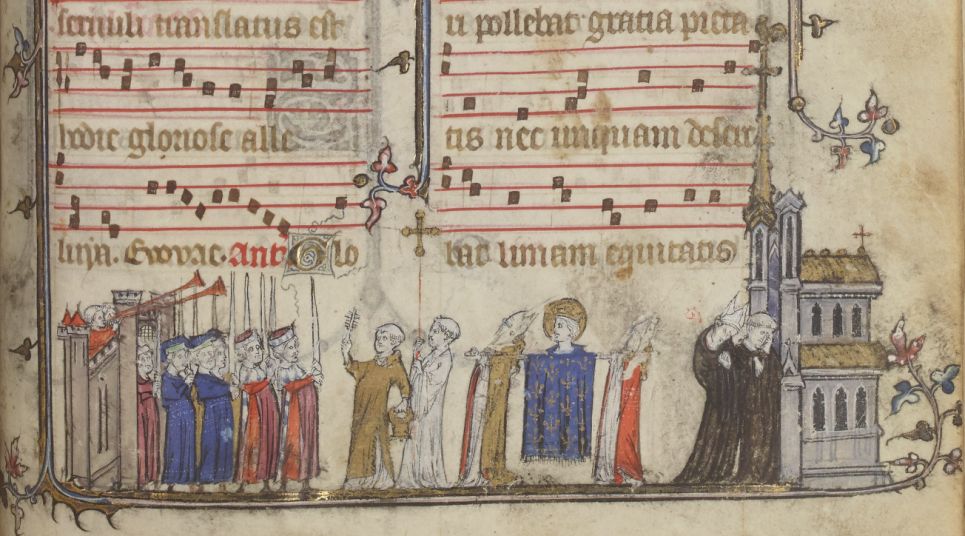 translatus est
hodie gloriose alle
luya. Evovae. Ant Glo
pollebat gratia pieta
tis nec unquam desere
bat limam equitatis